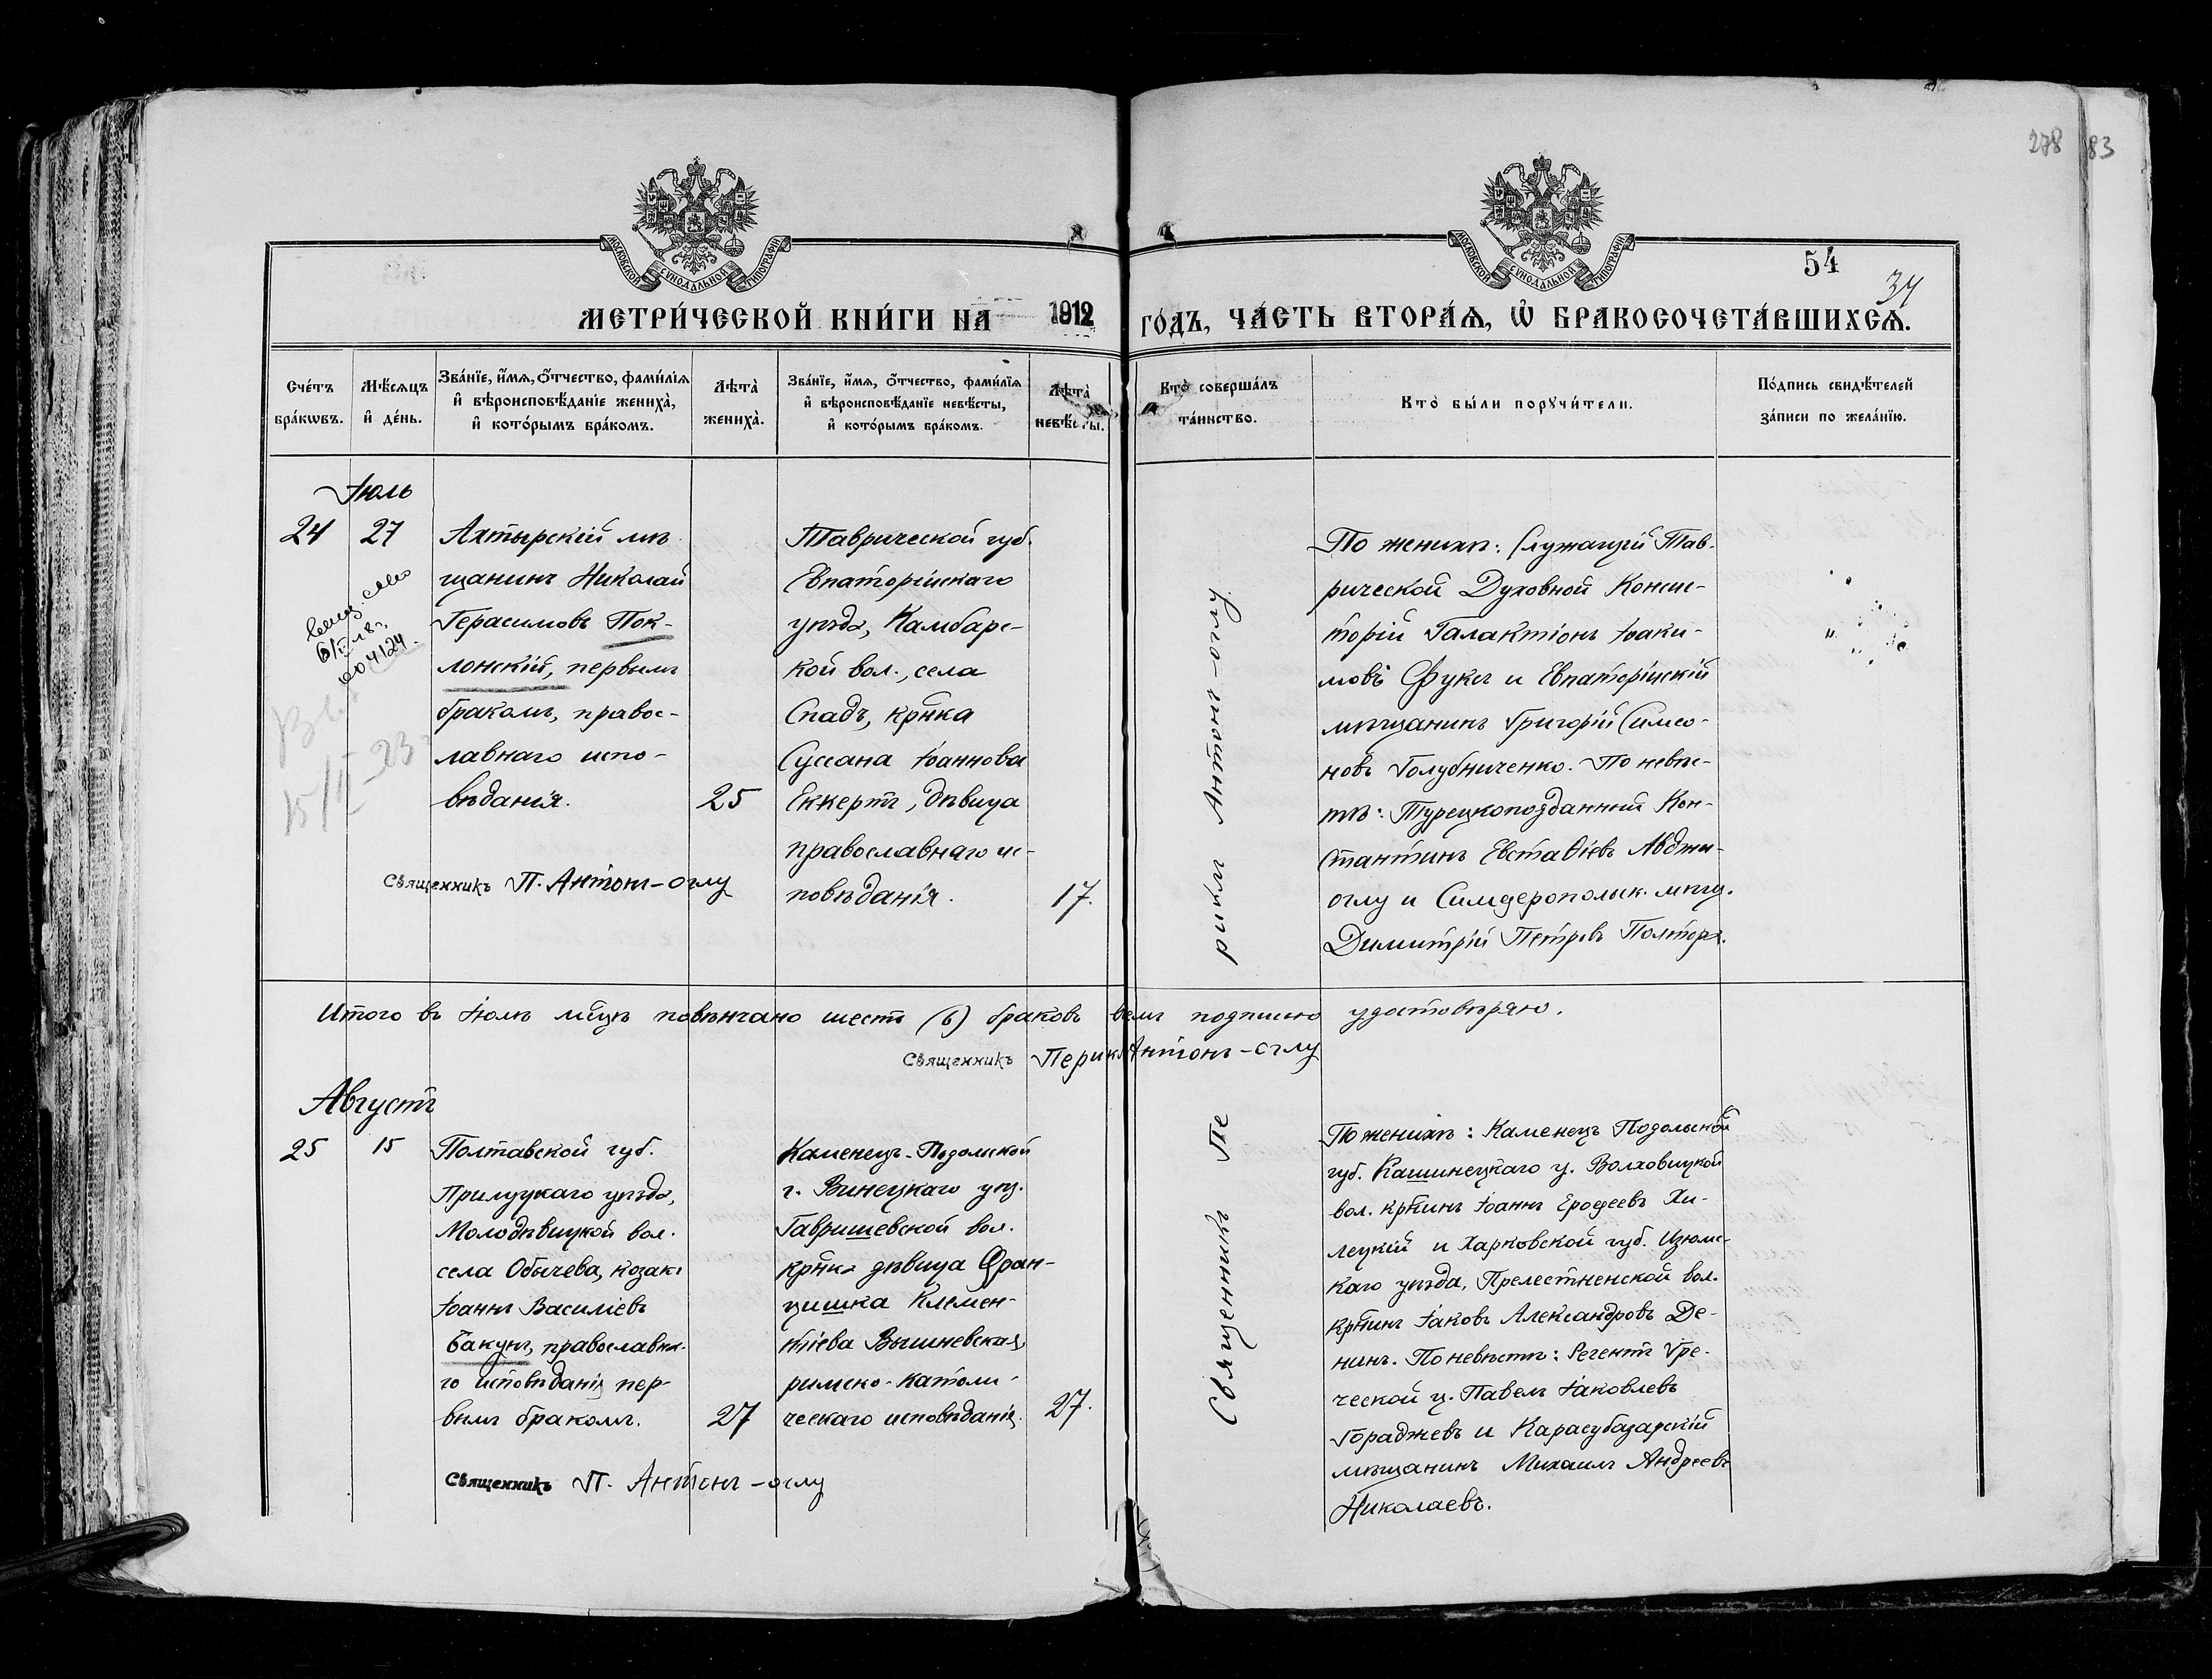 278 83
МОСКОВСКОЙ СѴНОДАЛЬНОЙ ТИПОГРАФІИ
МОСКОВСКОЙ СѴНОДАЛЬНОЙ ТИПОГРАФІИ
54
34
МЕТРИ́ЧЕСКОЙ КНИ́ГИ НА 1912 ГО́ДЪ, ЧА́СТЬ ВТОРА́Ѧ, Ѡ҆ БРАКОСОЧЕТА́ВШИХСѦ.
Сче́тъ бра́кѡвъ.
Мѣ́сѧцъ и҆ де́нь.
Зва́нїе, и҆́мѧ, ѻ҆́тчество, фами́лїѧ и҆ вѣроисповѣ́данїе жениха̀, и҆ кото́рымъ бра́комъ.
Лѣта̀ жениха̀.
Зва́нїе, и҆́мѧ, ѻ҆́тчество, фами́лїѧ и҆ вѣроисповѣ́данїе невѣ́сты, и҆ кото́рымъ бра́комъ.
Лѣта̀ невѣ́сты.
Кто̀ соверша́лъ та́инство.
Кто̀ бы́ли порꙋчи́тели.
По́дпись свидѣ́телей за́писи по жела́нїю.
Іюль
24 27
Ахтырскій мѣ
щанинъ Николай
Герасимовъ Пок-
лонскій, первымъ
бракомъ, правос-
лавнаго испо-
вѣданія.
25
Священникъ П. Антонъ-оглу
Таврической губ.
Евпаторійскаго
уѣзда, Камбарс-
кой вол., села
Спадъ, крнка
Сусана Іоаннова
Еккертъ, дѣвица
православнаго ис-
повѣданія.
17.
риклъ Антонъ-оглу
По женихѣ: Служащій Тав-
рической Духовной Конси-
торіи Галактіонъ Іоаки-
мовъ Фуксъ и Евпаторійскій
мѣщанинъ Григорій Симео-
новъ Голубниченко. По невѣс-
тѣ: Турецкоподданный Кон-
стантинъ Евстаѳіевъ Авджи-
оглу и Симферопольск. мѣщ.
Димитрій Петровъ Полтор.
Итого въ Іюлѣ мѣцѣ повѣнчано шесть (6) браковъ въ чемъ подписью удостовѣряю.
Священникъ Периклъ Антонъ-оглу
Августъ
25 15
Полтавской губ.
Прилуцкаго уѣзда,
Молодѣвицкой вол.
села Обычева, козакъ
Іоаннъ Василіевъ
Бакунъ, православна-
го исповѣданія пер-
вымъ бракомъ.
27
Священникъ П. Антонъ-оглу
Каменецъ-Подольской
г. Винецкаго уѣз.
Гавришевской вол.
крнка дѣвица Фран-
цишка Климен-
тіева Вышневская,
римско-католи-
ческаго исповѣданія.
27.
Священникъ Пе
По женихѣ: Каменецъ Подольской
губ. Кашинецкаго у. Волховицкой
вол. крнинъ Іоаннъ Ерофеевъ Хи-
лецкій и Харковской губ. Изюмс-
каго уѣзда, Прелестненской вол.
крнинъ Іаковъ Александровъ Де-
нинъ. По невѣстѣ: Регентъ Гре-
ческой ц. Павелъ Іаковлевъ
Гораджевъ и Карасубазарскій
мѣщанинъ Михаилъ Андреевъ
Николаевъ.